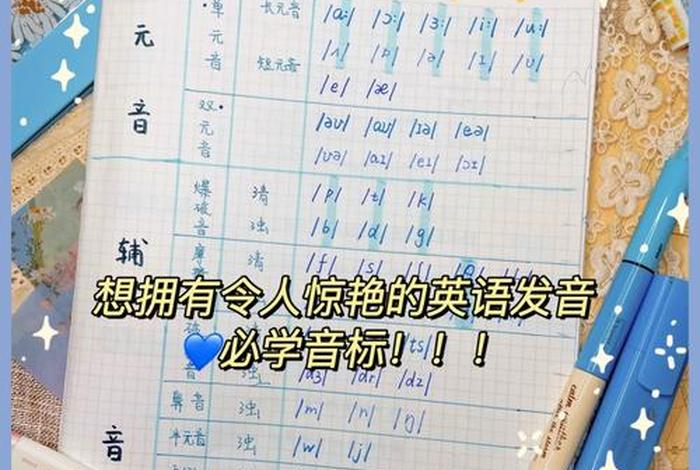 元音
单元音 长元音 /ɑ:/ /ɔ:/ /ɜ:/ /i:/ /u:/
短元音 /ʌ/ /ɒ/ /ə/ /ɪ/ /ʊ/
/e/ /æ/
双元音 /əʊ/ /aʊ/ /ɪə/ /eə/
/ʊə/ /aɪ/ /eɪ/ /ɔɪ/
辅
爆破音 清 /p/ /t/ /k/
浊 /b/ /d/ /g/
摩 清 /f/ /s/ /ʃ/ /θ/
想拥有令人惊艳的英语发音
💙必学音标！！！
/ts/
音 浊 /dʒ/ /dr/ /dz/
鼻音 浊 /m/ /n/ /ŋ/
音
半元音 浊 /w/ /j/
calm